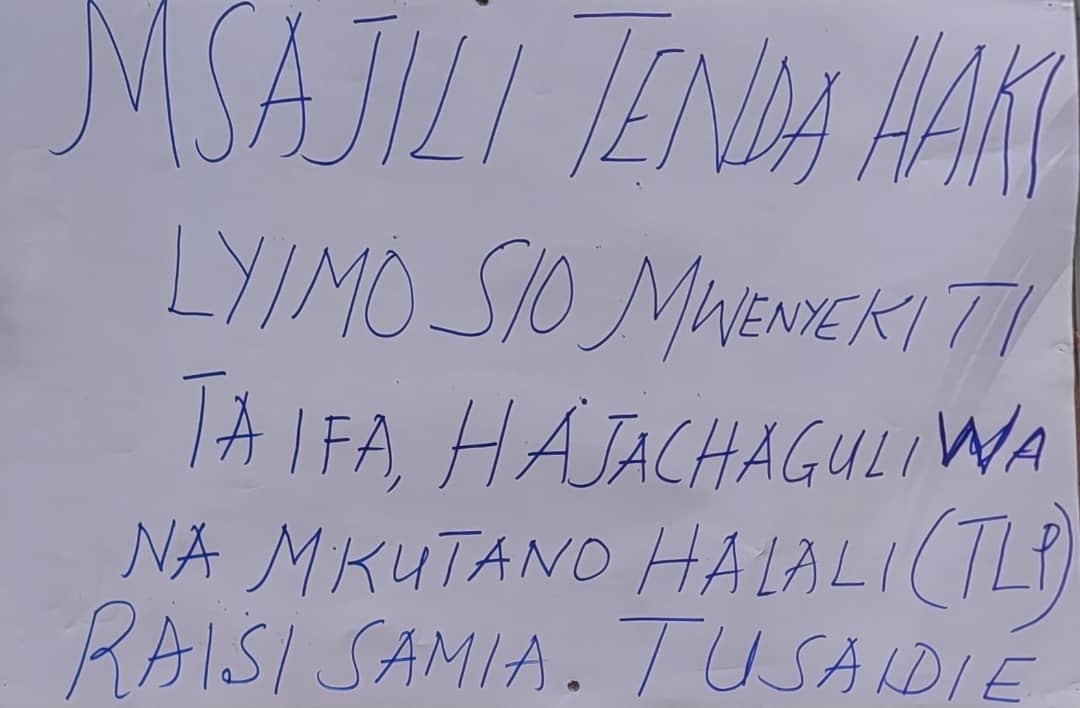 MSAJILI TENDA HAKI
LYIMO SIO MWENYEKITI
TAIFA, HAJACHAGULIWA
NA MKUTANO HALALI (TLP)
RAISI SAMIA. TUSAIDIE